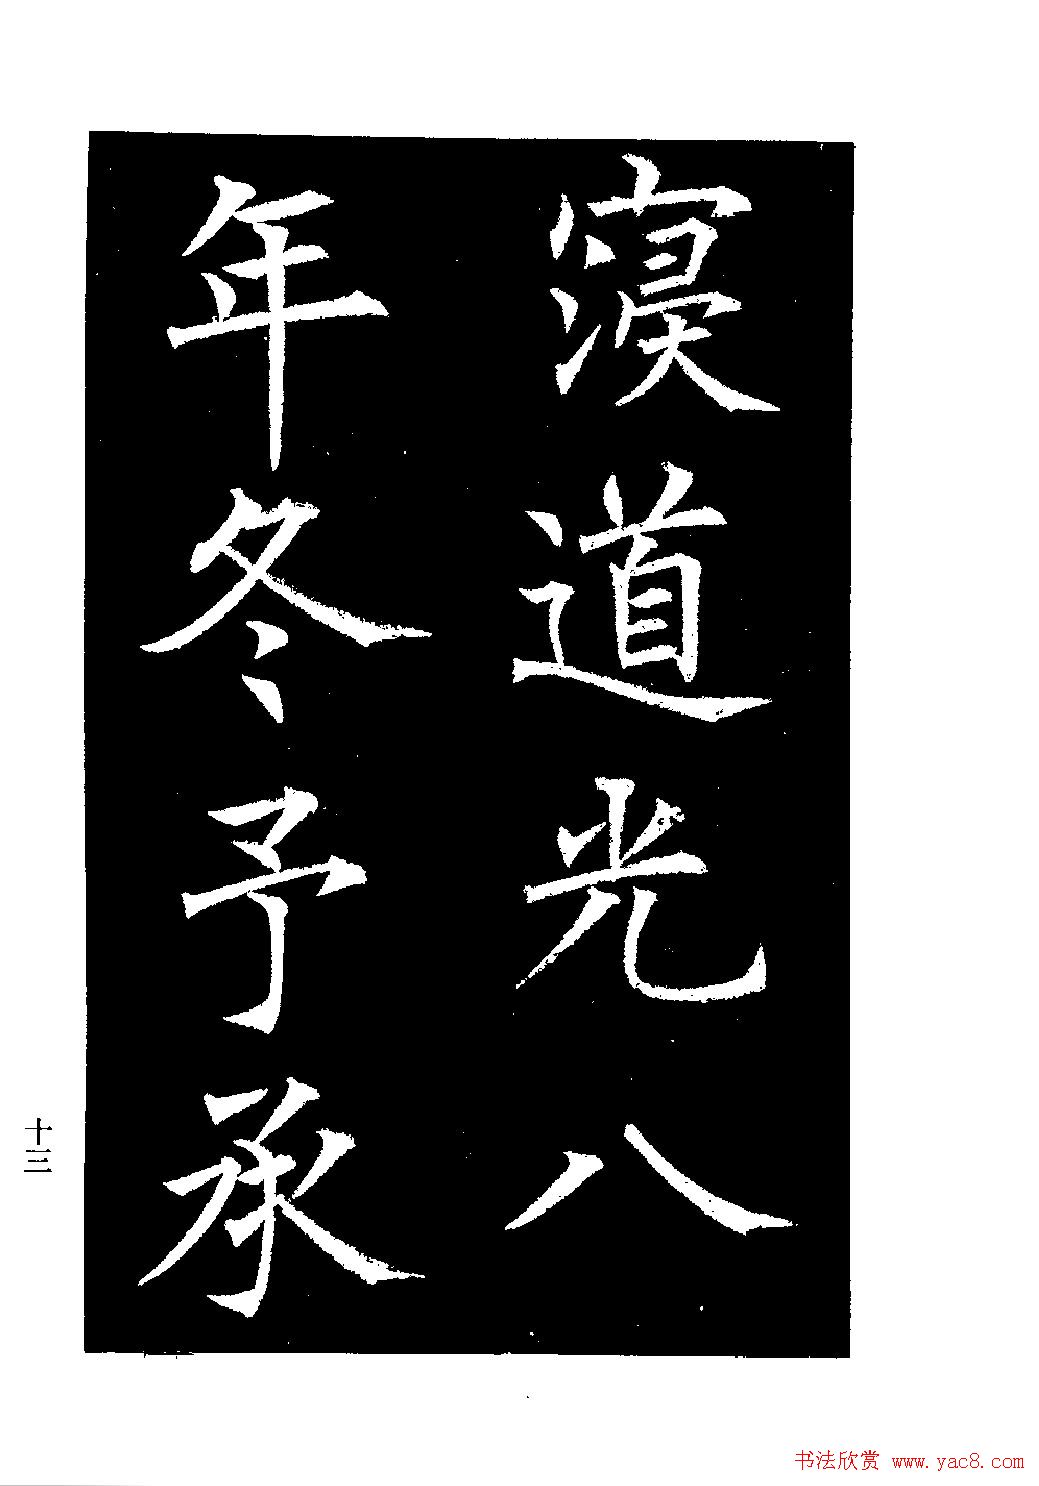 寖道光八
年冬予承
十三
书法欣赏 www.yac8.com